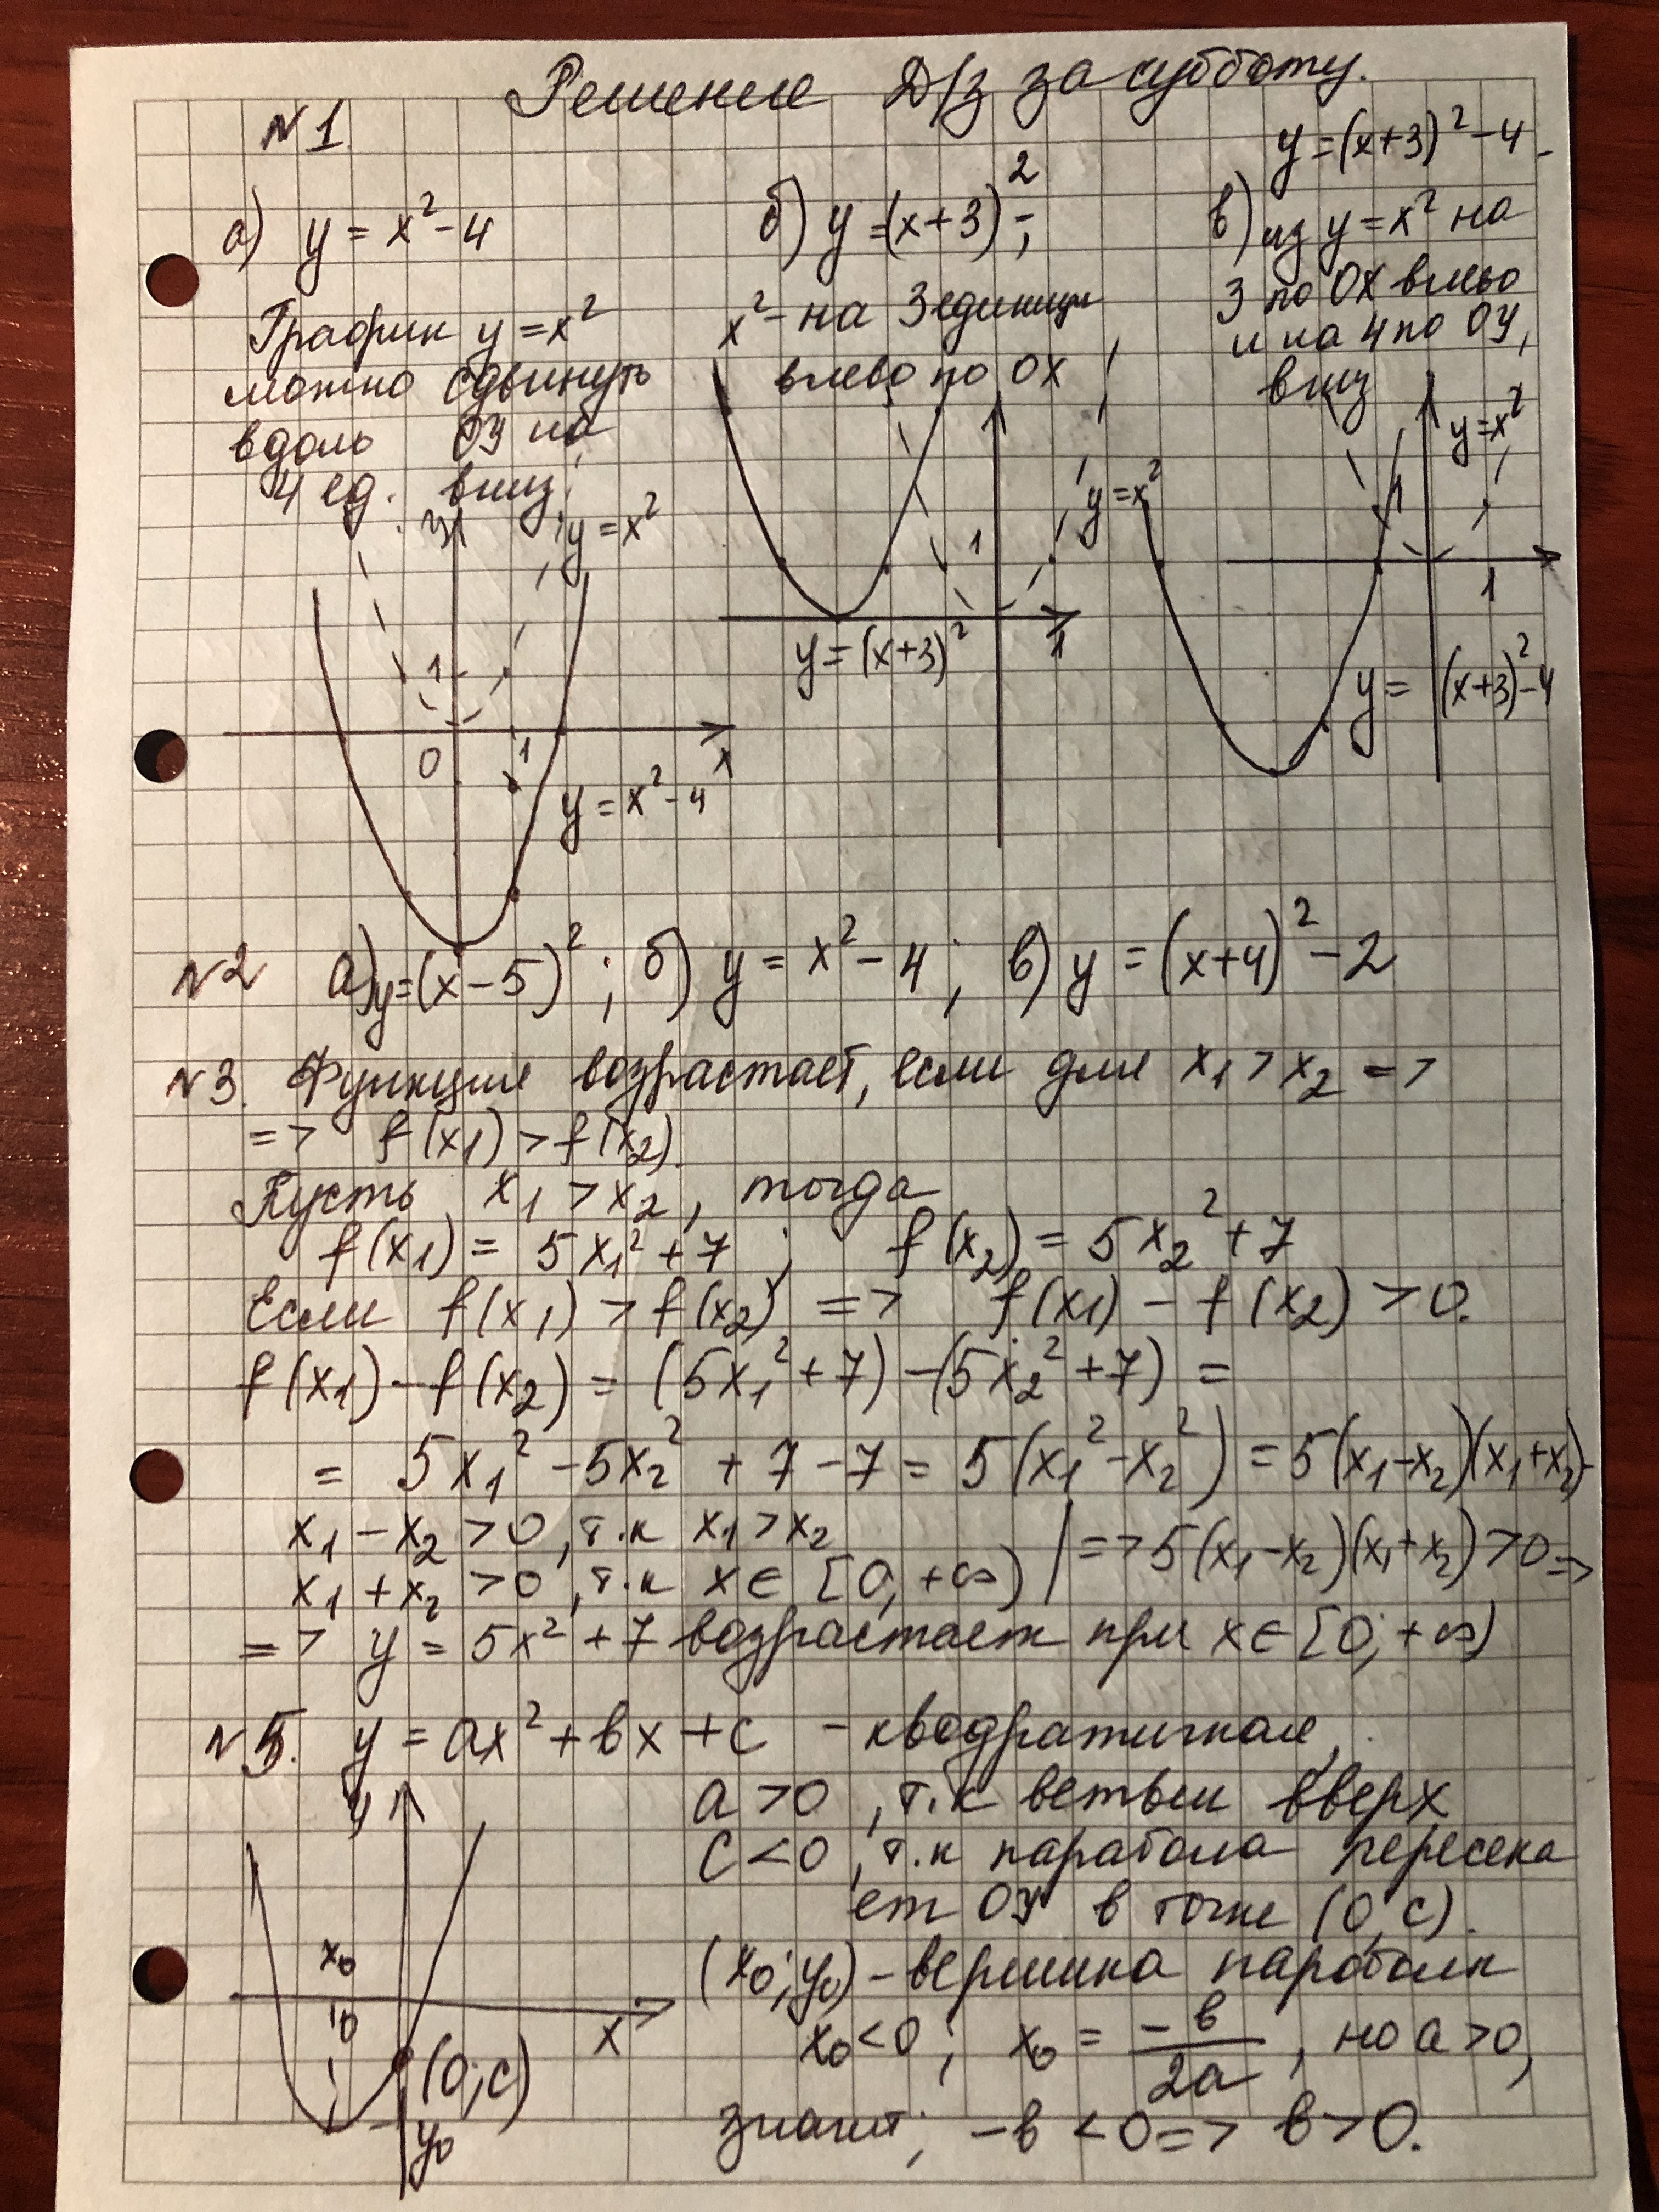 Решение Д/з за субботу.
№1
а) y = x² - 4
График y = x²
можно сдвинуть
вдоль OY на
4 ед. вниз
y
y = x²
1
0
1
x
y = x² - 4
б) y = (x+3)² ;
x² - на 3 единицы
влево по OX
y = x²
1
1
y = (x+3)²
y = (x+3)² - 4
в) из y = x² на
3 по OX влево
и на 4 по OY,
вниз
y = x²
1
1
y = (x+3)² - 4
№2 а) y = (x-5)² ; б) y = x² - 4 ; в) y = (x+4)² - 2
№3. Функция возрастает, если для x₁ > x₂ =>
=> f(x₁) > f(x₂).
Пусть x₁ > x₂, тогда
f(x₁) = 5x₁² + 7 ; f(x₂) = 5x₂² + 7
Если f(x₁) > f(x₂) => f(x₁) - f(x₂) > 0.
f(x₁) - f(x₂) = (5x₁² + 7) - (5x₂² + 7) =
= 5x₁² - 5x₂² + 7 - 7 = 5(x₁² - x₂²) = 5(x₁-x₂)(x₁+x₂)
x₁ - x₂ > 0, т.к x₁ > x₂
x₁ + x₂ > 0, т.к x ∈ [0, +∞) | => 5(x₁-x₂)(x₁+x₂) > 0 =>
=> y = 5x² + 7 возрастает при x ∈ [0; +∞)
№5. y = ax² + bx + c - квадратичная,
a > 0, т.к ветви вверх
c < 0, т.к парабола пересека
ет OY в точке (0, c).
(x₀; y₀) - вершина параболы
x₀ < 0 ; x₀ = -b/2a, но a > 0,
значит; -b < 0 => b > 0.
y
x₀
x
(0; c)
y₀